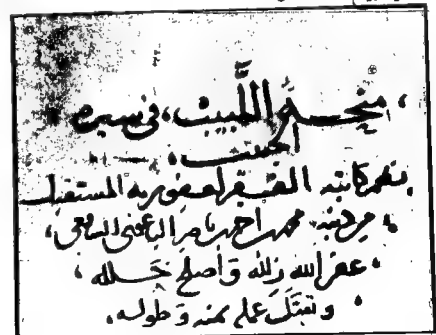 منحة اللبيب، في سيرة
الحبيب.
نظم كاتبه الفقير لعفو ربه المستقيل
من ذنبه محمد احمد ناصر الباعوني الشافعي،
غفر الله زلله وأصلح خلله
وتقبل عمله بمنه وطوله.